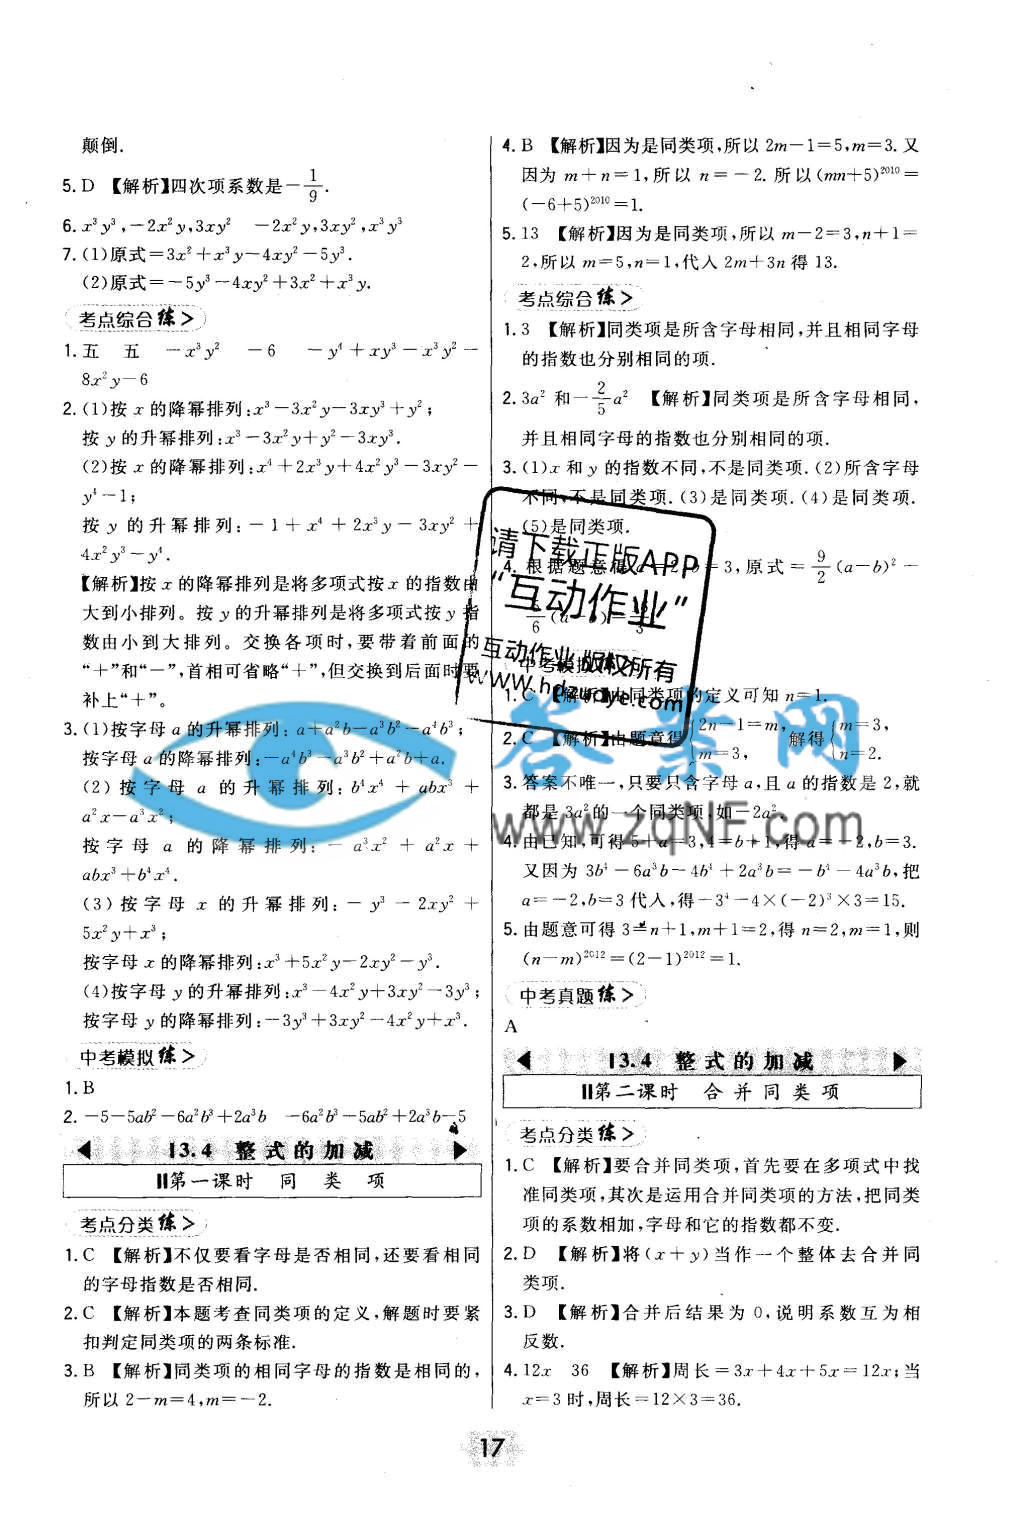 颠倒.
5. D 【解析】四次项系数是-1/9.
6. x³y³,-2x²y,3xy² -2x²y,3xy²,x³y³
7. (1)原式=3x²+x³y-4xy²-5y³.
(2)原式=-5y³-4xy²+3x²+x³y.
考点综合练>
1. 五 五 -x³y² -6 -y⁴+xy³-x³y²-
8x²y-6
2. (1)按 x 的降幂排列:x³-3x²y-3xy³+y²;
按 y 的升幂排列:x³-3x²y+y²-3xy³.
(2)按 x 的降幂排列:x⁴+2x³y+4x²y³-3xy²-
y⁴-1;
按 y 的升幂排列:-1+x⁴+2x³y-3xy²+
4x²y³-y⁴.
【解析】按 x 的降幂排列是将多项式按 x 的指数由
大到小排列。按 y 的升幂排列是将多项式按 y 指
数由小到大排列。交换各项时,要带着前面的
“+”和“-”,首相可省略“+”,但交换到后面时要
补上“+”。
3. (1)按字母 a 的升幂排列:a+a²b-a³b²-a⁴b³;
按字母 a 的降幂排列:-a⁴b³-a³b²+a²b+a.
(2)按字母 a 的升幂排列:b⁴x⁴+abx³+
a²x-a³x²;
按字母 a 的降幂排列:-a³x²+a²x+
abx³+b⁴x⁴.
(3)按字母 x 的升幂排列:-y³-2xy²+
5x²y+x³;
按字母 x 的降幂排列:x³+5x²y-2xy²-y³.
(4)按字母 y 的升幂排列:x³-4x²y+3xy²-3y³;
按字母 y 的降幂排列:-3y³+3xy²-4x²y+x³.
中考模拟练>
1. B
2. -5-5ab²-6a²b³+2a³b -6a²b³-5ab²+2a³b-5
13.4 整式的加减
第一课时 同类项
考点分类练>
1. C 【解析】不仅要看字母是否相同,还要看相同
的字母指数是否相同.
2. C 【解析】本题考查同类项的定义,解题时要紧
扣判定同类项的两条标准.
3. B 【解析】同类项的相同字母的指数是相同的,
所以 2-m=4,m=-2.
4. B 【解析】因为是同类项,所以 2m-1=5,m=3.又
因为 m+n=1,所以 n=-2.所以(mn+5)²⁰¹⁰=
(-6+5)²⁰¹⁰=1.
5. 13 【解析】因为是同类项,所以 m-2=3,n+1=
2,所以 m=5,n=1,代入 2m+3n 得 13.
考点综合练>
1. 3 【解析】同类项是所含字母相同,并且相同字母
的指数也分别相同的项.
2. 3a² 和-2/5a² 【解析】同类项是所含字母相同,
并且相同字母的指数也分别相同的项.
3. (1)x 和 y 的指数不同,不是同类项.(2)所含字母
不同,不是同类项.(3)是同类项.(4)是同类项.
(5)是同类项.
4. 根据题意得 =3,原式=9/2(a-b)²-
中考模拟练>
1. C 【解析】由同类项的定义可知 n=1.
2. C 【解析】由题意得{2n-1=m, m=3, 解得{m=3, n=2.
3. 答案不唯一,只要只含字母 a,且 a 的指数是 2,就
都是 3a²的一个同类项,如-2a².
4. 由已知,可得 5+a=3,4=b+1,得 a=-2,b=3.
又因为 3b⁴-6a³b-4b⁴+2a³b=-b⁴-4a³b,把
a=-2,b=3 代入,得-3⁴-4×(-2)³×3=15.
5. 由题意可得 3=n+1,m+1=2,得 n=2,m=1,则
(n-m)²⁰¹²=(2-1)²⁰¹²=1.
中考真题练>
A
13.4 整式的加减
第二课时 合并同类项
考点分类练>
1. C 【解析】要合并同类项,首先要在多项式中找
准同类项,其次是运用合并同类项的方法,把同类
项的系数相加,字母和它的指数都不变.
2. D 【解析】将(x+y)当作一个整体去合并同
类项.
3. D 【解析】合并后结果为 0,说明系数互为相
反数.
4. 12x 36 【解析】周长=3x+4x+5x=12x;当
x=3 时,周长=12×3=36.
17
请下载正版APP
“互动作业”
互动作业 版权所有
www.hdzuoye.com
答案网
www.zqNF.com